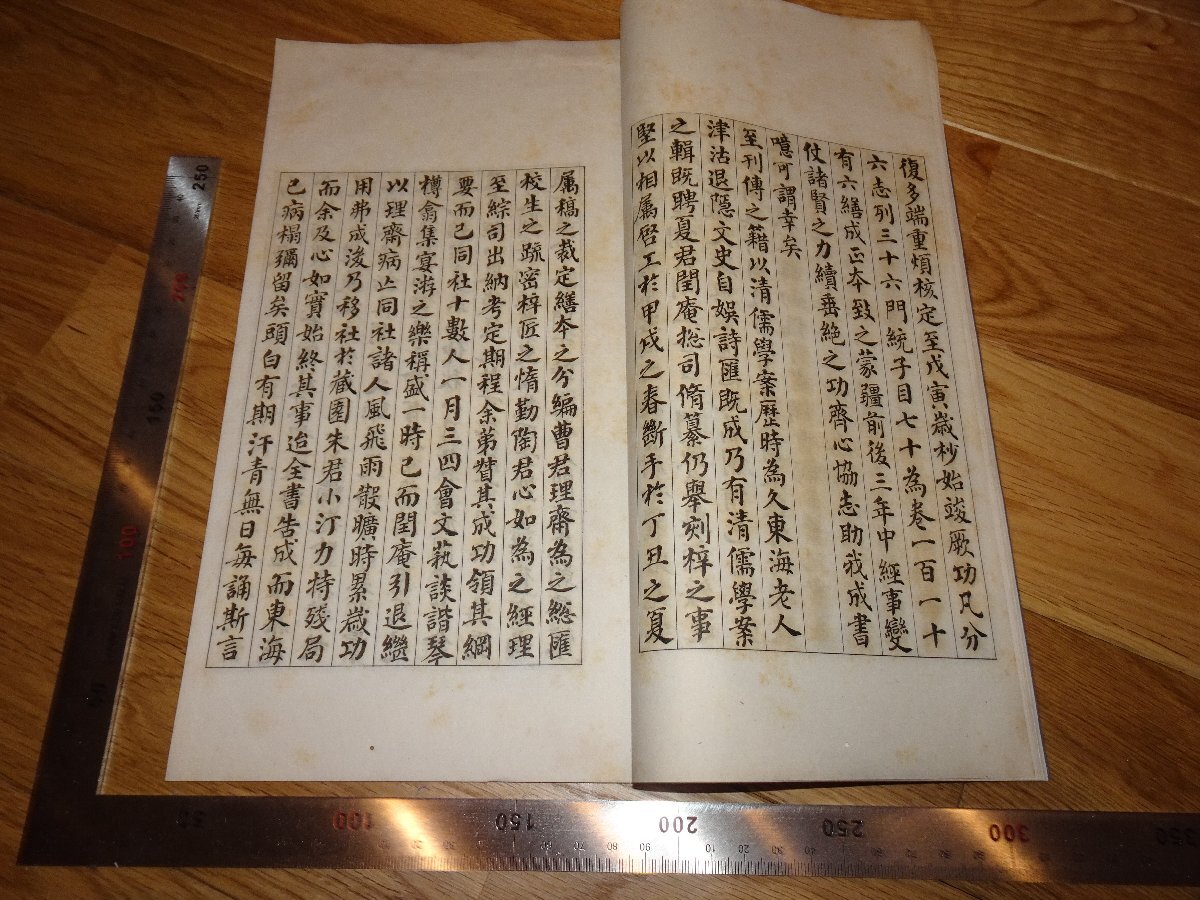 復多端重煩核定至戊寅歲杪始竣厥功凡分
六志列三十六門統子目七十為卷一百一十
有六繕成正本致之蒙疆前後三年中經事變
仗諸賢之力續垂絕之功齊心協志助我成書
噫可謂幸矣
至刊傳之籍以清儒學案歷時為久東海老人
津沽退隱文史自娛詩匯既成乃有清儒學案
之輯既聘夏君閏庵總司脩纂仍舉剞梓之事
堅以相属啓工於甲戌之春斷手於丁丑之夏
属稿之裁定繕本之分編曹君理齋為之總匯
校生之疏密梓匠之惰勤陶君心如為之經理
至綜司出納考定期程余弟贊其成功領其綱
要而已同社十數人一月三四會文萟談諧琴
樽翕集宴游之樂稱盛一時已而閏庵引退繼
以理齋病亾同社諸人風飛雨散曠時累歲功
用弗成浚乃移社於藏園朱君小汀力持殘局
而余及心如實始終其事迨全書告成而東海
已病榻彌留矣頭白有期汗青無日每誦斯言
50
100
150
200
250
300
350
50
100
150
200
250